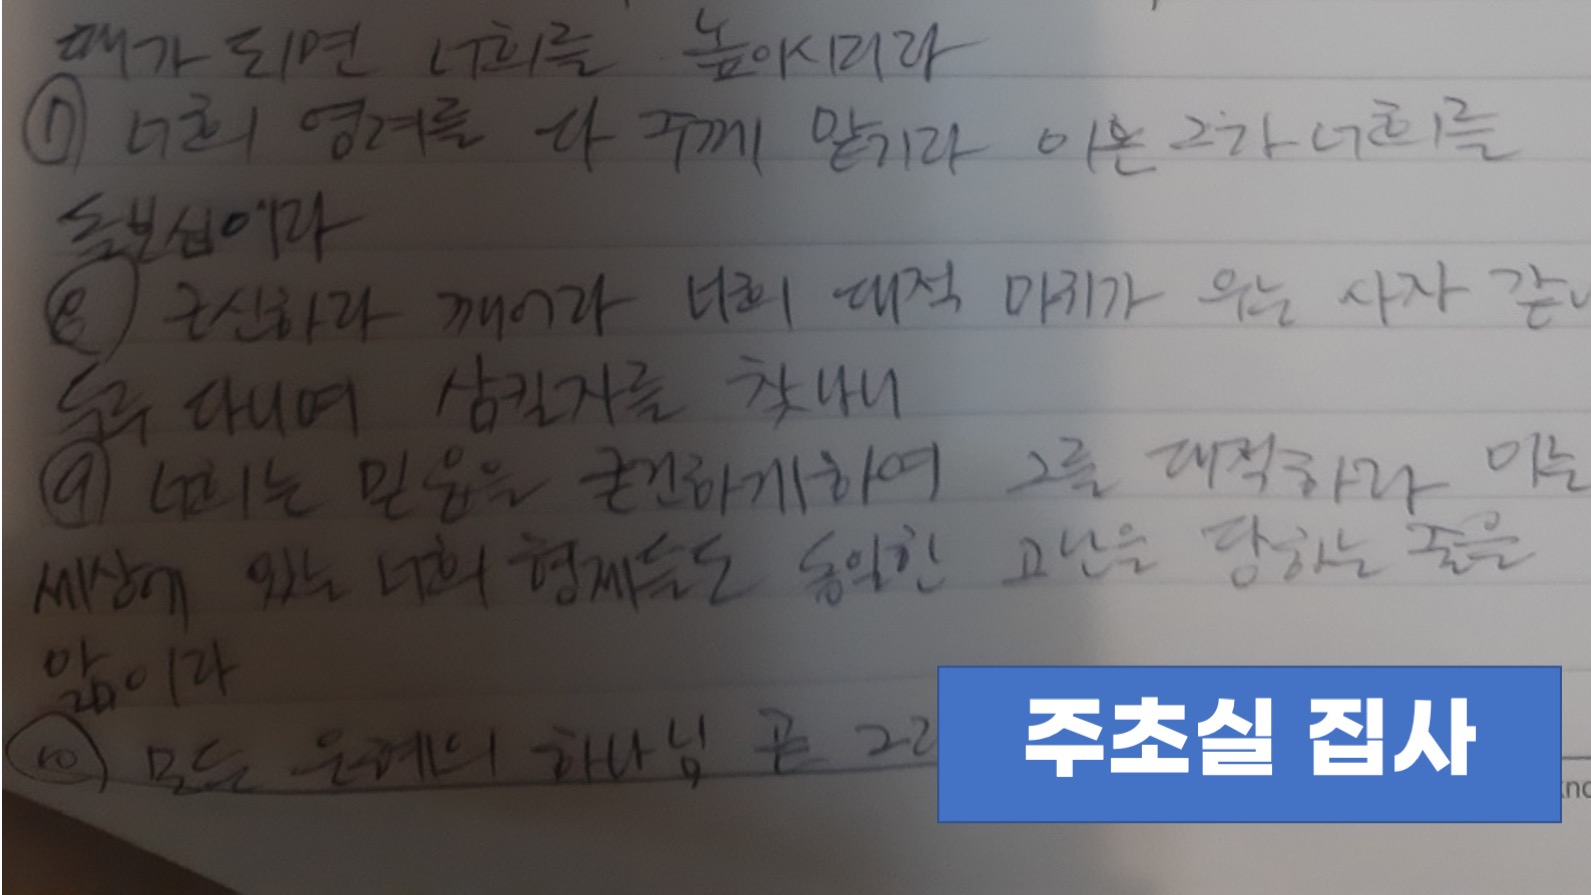 때가 되면 너희를 높이시리라
⑦ 너희 염려를 다 주께 맡기라 이는 그가 너희를
돌보심이라
⑧ 근신하라 깨어라 너희 대적 마귀가 우는 사자 같이
두루 다니며 삼킬자를 찾나니
⑨ 너희는 믿음을 굳건하게하여 그를 대적하라 이는
세상에 있는 너희 형제들도 동일한 고난을 당하는 줄을
앎이라
⑩ 모든 은혜의 하나님 곧 그리
주초실 집사